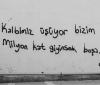 Kalbimiz üşüyor bizim
Milyon kat giyinsek boşa.